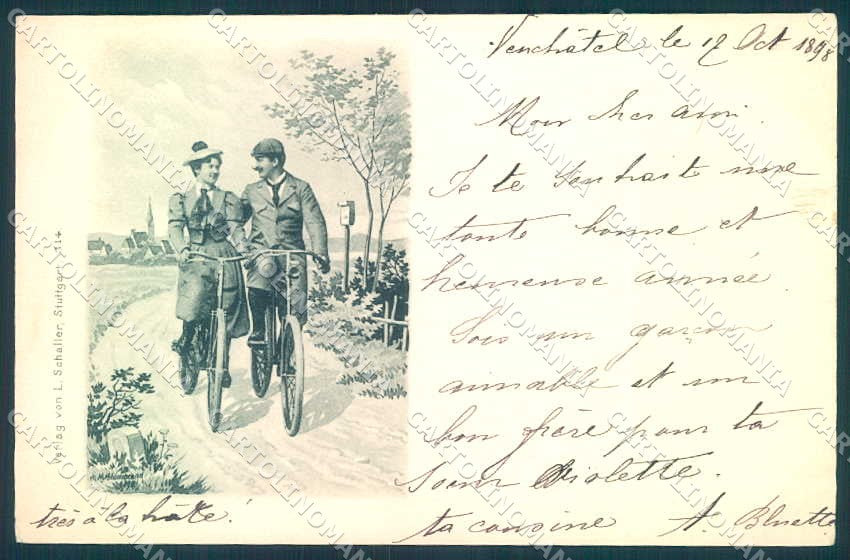 Neuchâtel le 12 Oct 1898
Mon cher ami.
Je te souhait une
toute bonne et
heureuse année.
Sois un garçon
aimable et un
bon frère pour ta
soeur Violette.
ta cousine A. Bluette
très à la hâte!
Verlag von L. Schaller, Stuttgart 114
CARTOLINOMANIA